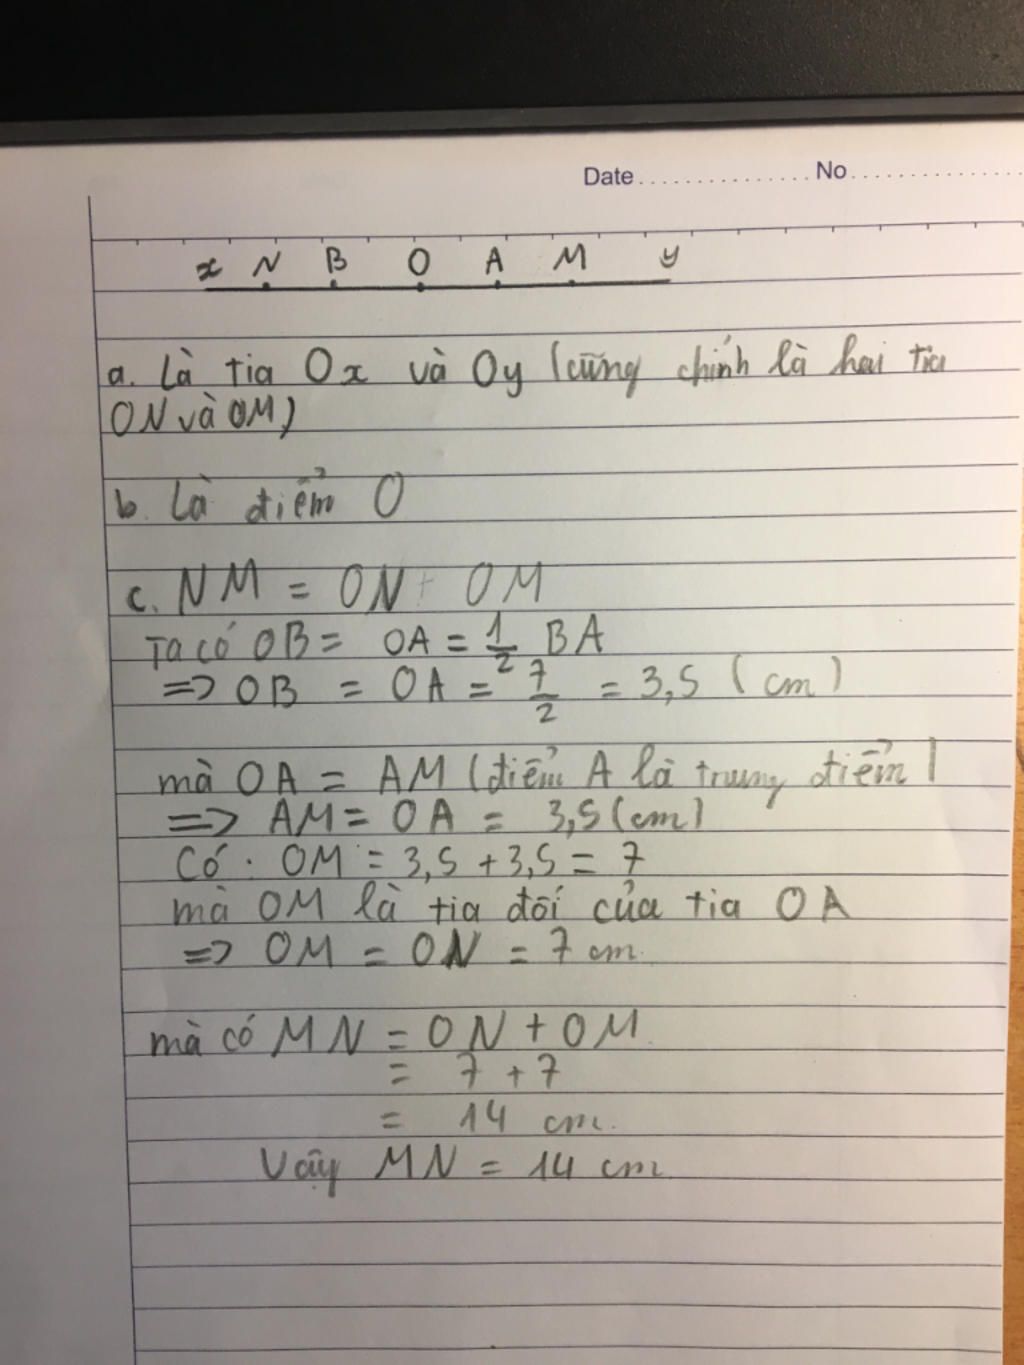 Date ................ No ................
x N B O A M y
a. Là tia Ox và Oy (cũng chính là hai tia
ON và OM)
b. Là điểm O
c. NM = ON + OM
Ta có OB = OA = 1/2 BA
=> OB = OA = 7/2 = 3,5 (cm)
mà OA = AM (điểm A là trung điểm)
=> AM = OA = 3,5 (cm)
Có : OM = 3,5 + 3,5 = 7
mà OM là tia đối của tia OA
=> OM = ON = 7 cm.
mà có MN = ON + OM.
= 7 + 7
= 14 cm.
Vậy MN = 14 cm.